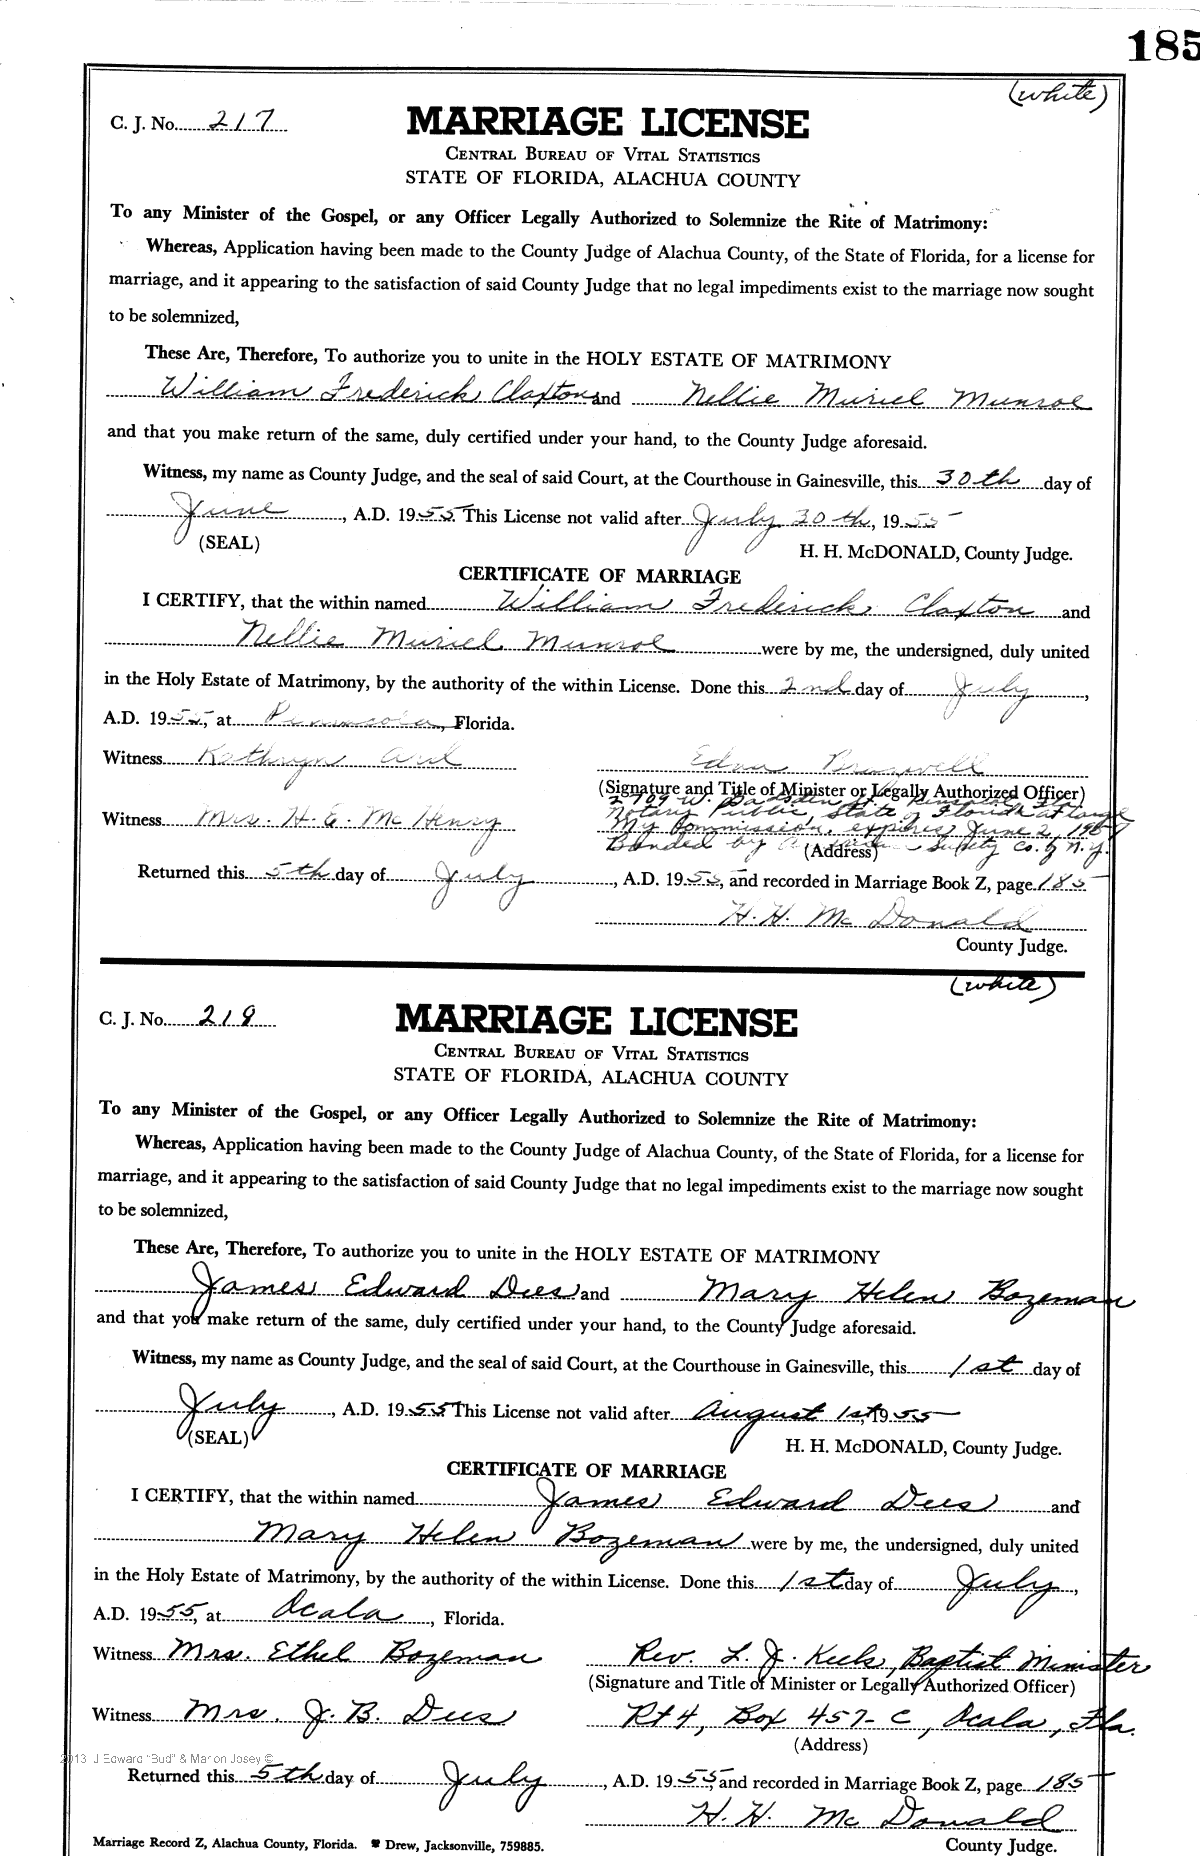 185
(white)
C. J. No. 217
MARRIAGE LICENSE
CENTRAL BUREAU OF VITAL STATISTICS
STATE OF FLORIDA, ALACHUA COUNTY
To any Minister of the Gospel, or any Officer Legally Authorized to Solemnize the Rite of Matrimony:
Whereas, Application having been made to the County Judge of Alachua County, of the State of Florida, for a license for
marriage, and it appearing to the satisfaction of said County Judge that no legal impediments exist to the marriage now sought
to be solemnized,
These Are, Therefore, To authorize you to unite in the HOLY ESTATE OF MATRIMONY
William Frederick Claxton and Nellie Muriel Munroe
and that you make return of the same, duly certified under your hand, to the County Judge aforesaid.
Witness, my name as County Judge, and the seal of said Court, at the Courthouse in Gainesville, this 30th day of
June, A.D. 1955. This License not valid after July 30th, 1955
(SEAL)
H. H. McDONALD, County Judge.
CERTIFICATE OF MARRIAGE
I CERTIFY, that the within named William Frederick Claxton and
Nellie Muriel Munroe were by me, the undersigned, duly united
in the Holy Estate of Matrimony, by the authority of the within License. Done this 2nd day of July,
A.D. 1955, at Pensacola, Florida.
Witness Kathryn Edna Braswell
(Signature and Title of Minister or Legally Authorized Officer)
2709 W. Gadsden St. Pensacola, Fla.
Notary Public, State of Florida at Large
Witness Mrs. H. E. McHenry My Commission expires June 2, 1957
Bonded by Surety Co. of N.Y.
(Address)
Returned this 5th day of July, A.D. 1955, and recorded in Marriage Book Z, page 185
H. H. McDonald
County Judge.
(white)
C. J. No. 219
MARRIAGE LICENSE
CENTRAL BUREAU OF VITAL STATISTICS
STATE OF FLORIDA, ALACHUA COUNTY
To any Minister of the Gospel, or any Officer Legally Authorized to Solemnize the Rite of Matrimony:
Whereas, Application having been made to the County Judge of Alachua County, of the State of Florida, for a license for
marriage, and it appearing to the satisfaction of said County Judge that no legal impediments exist to the marriage now sought
to be solemnized,
These Are, Therefore, To authorize you to unite in the HOLY ESTATE OF MATRIMONY
James Edward Dees and Mary Helen Bozeman
and that you make return of the same, duly certified under your hand, to the County Judge aforesaid.
Witness, my name as County Judge, and the seal of said Court, at the Courthouse in Gainesville, this 1st day of
July, A.D. 1955 This License not valid after August 1st, 1955
(SEAL)
H. H. McDONALD, County Judge.
CERTIFICATE OF MARRIAGE
I CERTIFY, that the within named James Edward Dees and
Mary Helen Bozeman were by me, the undersigned, duly united
in the Holy Estate of Matrimony, by the authority of the within License. Done this 1st day of July,
A.D. 1955, at Ocala, Florida.
Witness Mrs. Ethel Bozeman Rev. L. J. Keels, Baptist Minister
(Signature and Title of Minister or Legally Authorized Officer)
Witness Mrs. J. B. Dees Rt 4, Box 457-C, Ocala, Fla.
(Address)
2013 J Edward "Bud" & Marion Josey ©
Returned this 5th day of July, A.D. 1955, and recorded in Marriage Book Z, page 185
H. H. McDonald
Marriage Record Z, Alachua County, Florida. Drew, Jacksonville, 759885.
County Judge.